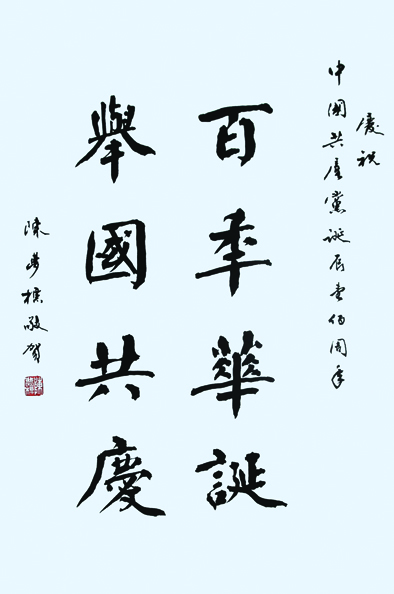 慶祝
中國共產黨誕辰壹佰周年
百年華誕
舉國共慶
陳夢標敬賀